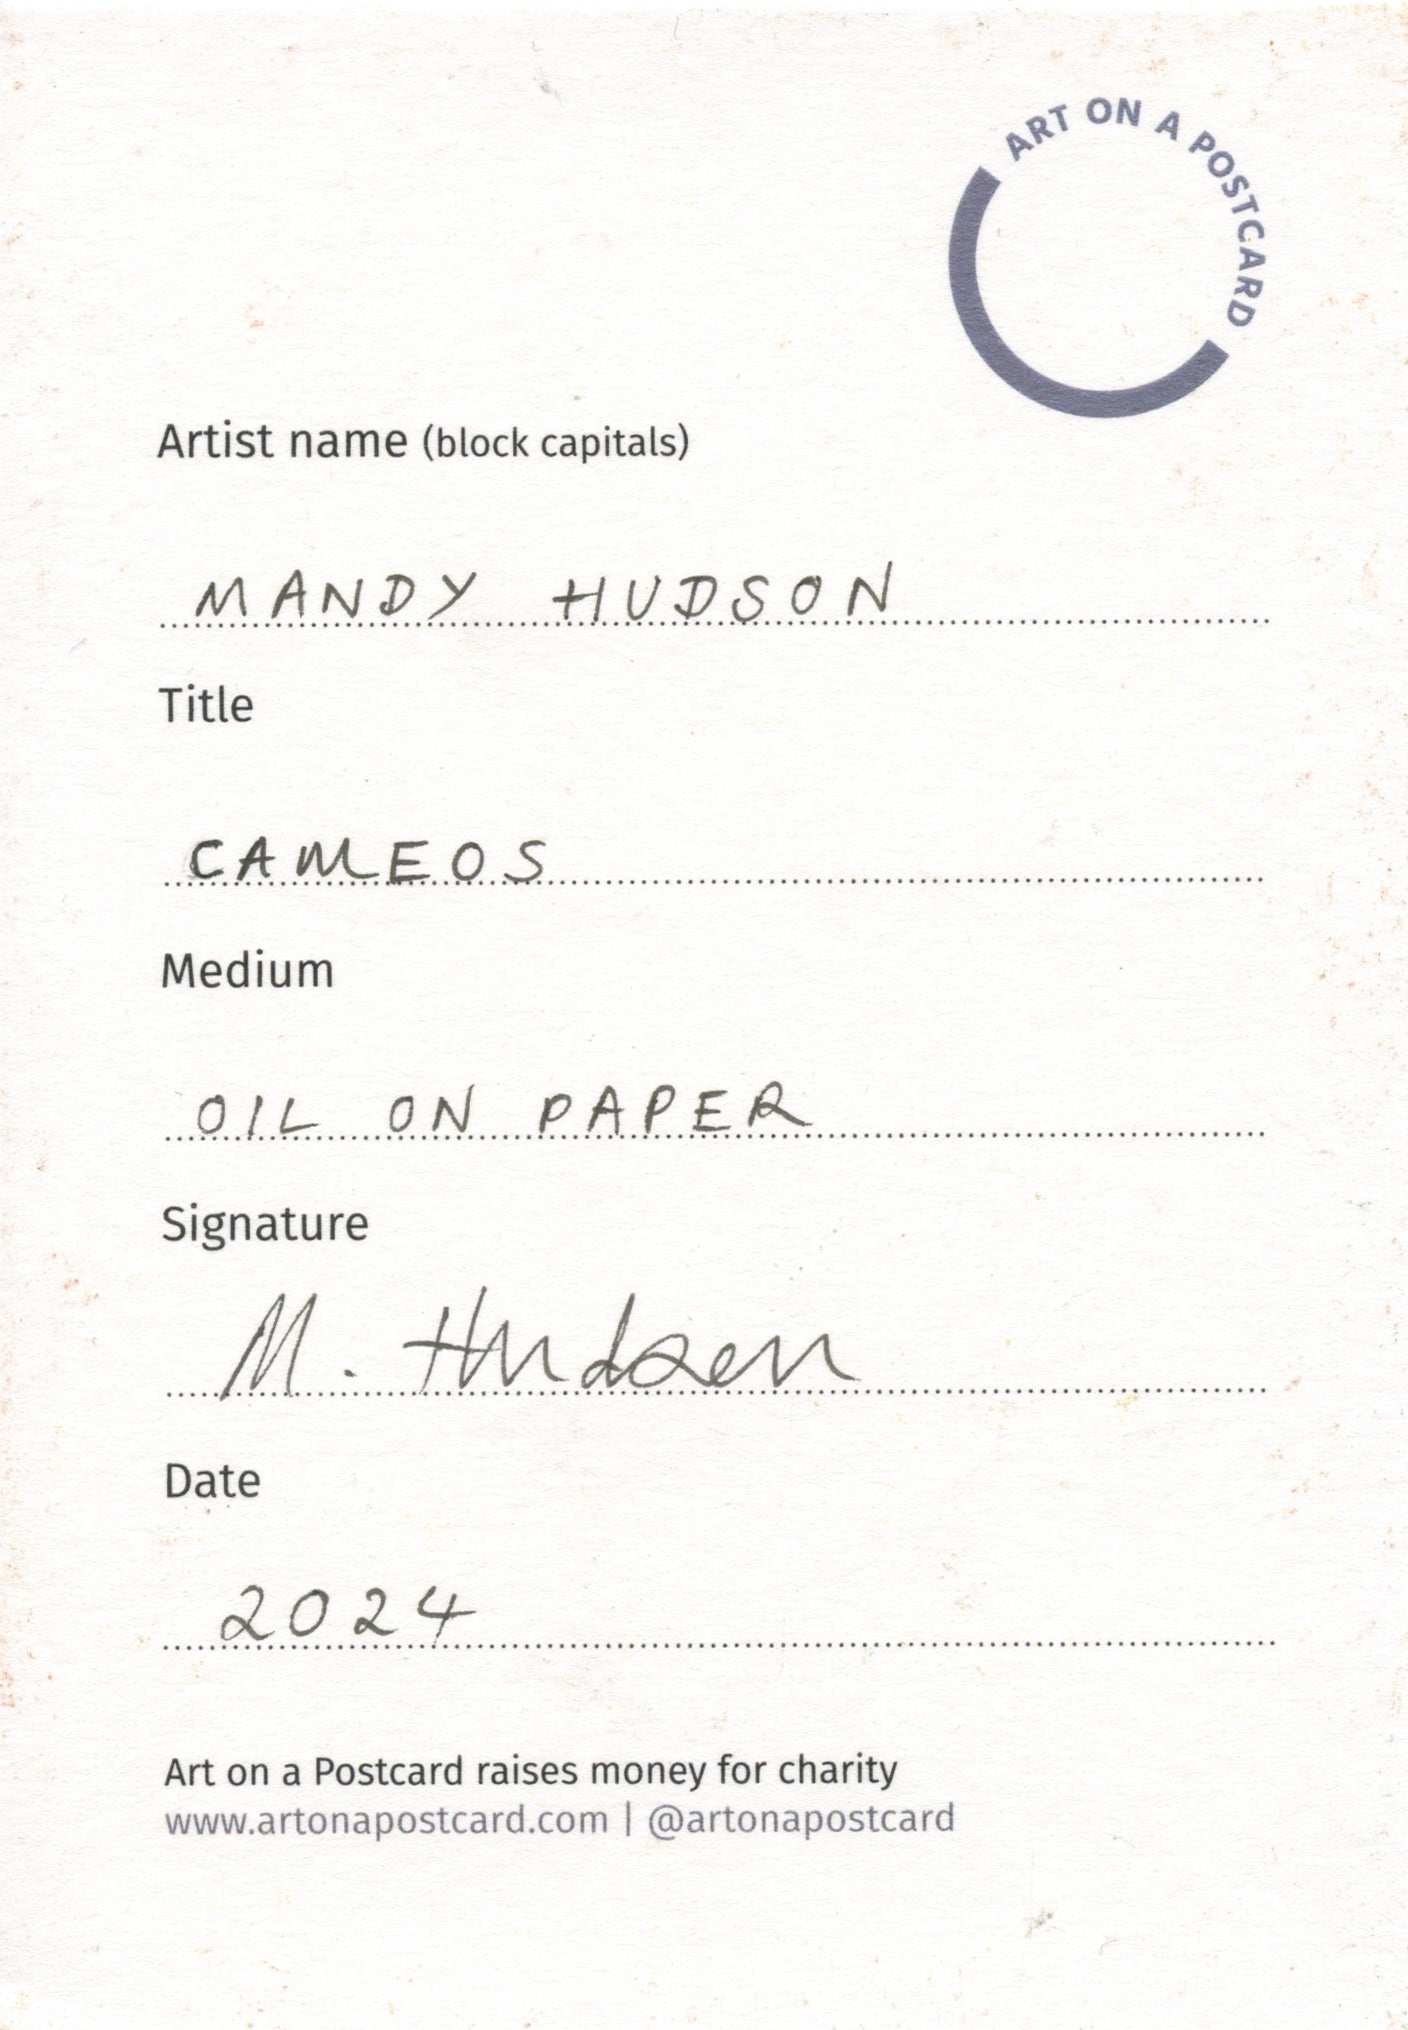 ART ON A POSTCARD
Artist name (block capitals)
MANDY HUDSON
Title
CAMEOS
Medium
OIL ON PAPER
Signature
M. Hudson
Date
2024
Art on a Postcard raises money for charity
www.artonapostcard.com | @artonapostcard